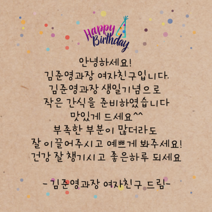 Happy
Birthday
안녕하세요!
김준영과장 여자친구입니다.
김준영과장 생일기념으로
작은 간식을 준비하였습니다
맛있게 드세요^^
부족한 부분이 많더라도
잘 이끌어주시고 예쁘게 봐주세요!
건강 잘 챙기시고 좋은하루 되세요
- 김준영과장 여자친구 드림-